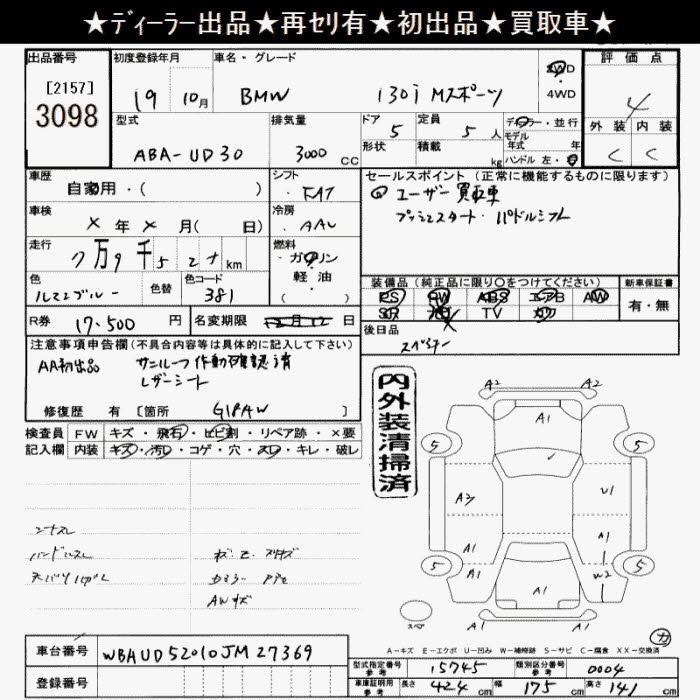 ★ディーラー出品★再セリ有★初出品★買取車★
出品番号
[2157]
3098
初度登録年月
19 10月
車名・グレード
BMW 130i Mスポーツ
2WD
4WD
評価点
4
外装 内装
C C
型式
ABA-UD30
排気量
3000 CC
ドア 5
形状
定員 5人
積載 kg
ディーラー・並行
モデル
年式 年
ハンドル 左・右
車歴
自家用・( )
シフト
FAT
セールスポイント (正常に機能するものに限ります)
ユーザー買取車
プッシュスタート・パドルシフト
車検
×年×月( 日)
冷房
AAC
走行
7万9千52+km
燃料
ガソリン
軽油
( )
色
ルマンブルー
色替
色コード
381
装備品 (純正品に限り○をつけてください)
PS PW ABS エアB AW
SR TV カワ
新車保証書
有・無
R券 17.500円
名変期限 日
後日品
スペアキー
注意事項申告欄 (不具合内容等は具体的に記入して下さい)
AA初出品 サンルーフ作動確認済
レザーシート
修復歴 有 [箇所 ]
内外装清掃済
検査員 FW キズ・飛石・ヒビ割・リペア跡・×要
記入欄 内装 キズ・汚レ・コゲ・穴・スレ・キレ・破レ
ハンドルスレ
AWキズ
A2 A2
A1
5 5
A3 U1
A1 A1
5 5
A1 A1 W2
A1
スペア
A-キズ E-エクボ U-凹み W-補修跡 S-サビ C-腐食 XX-交換済
車台番号 WBAUD52010JM27369
登録番号
型式指定番号 参考 15745
類別区分番号 参考 0004
車庫証明用 参考 長さ 424 cm 幅 175 cm 高さ 141 cm